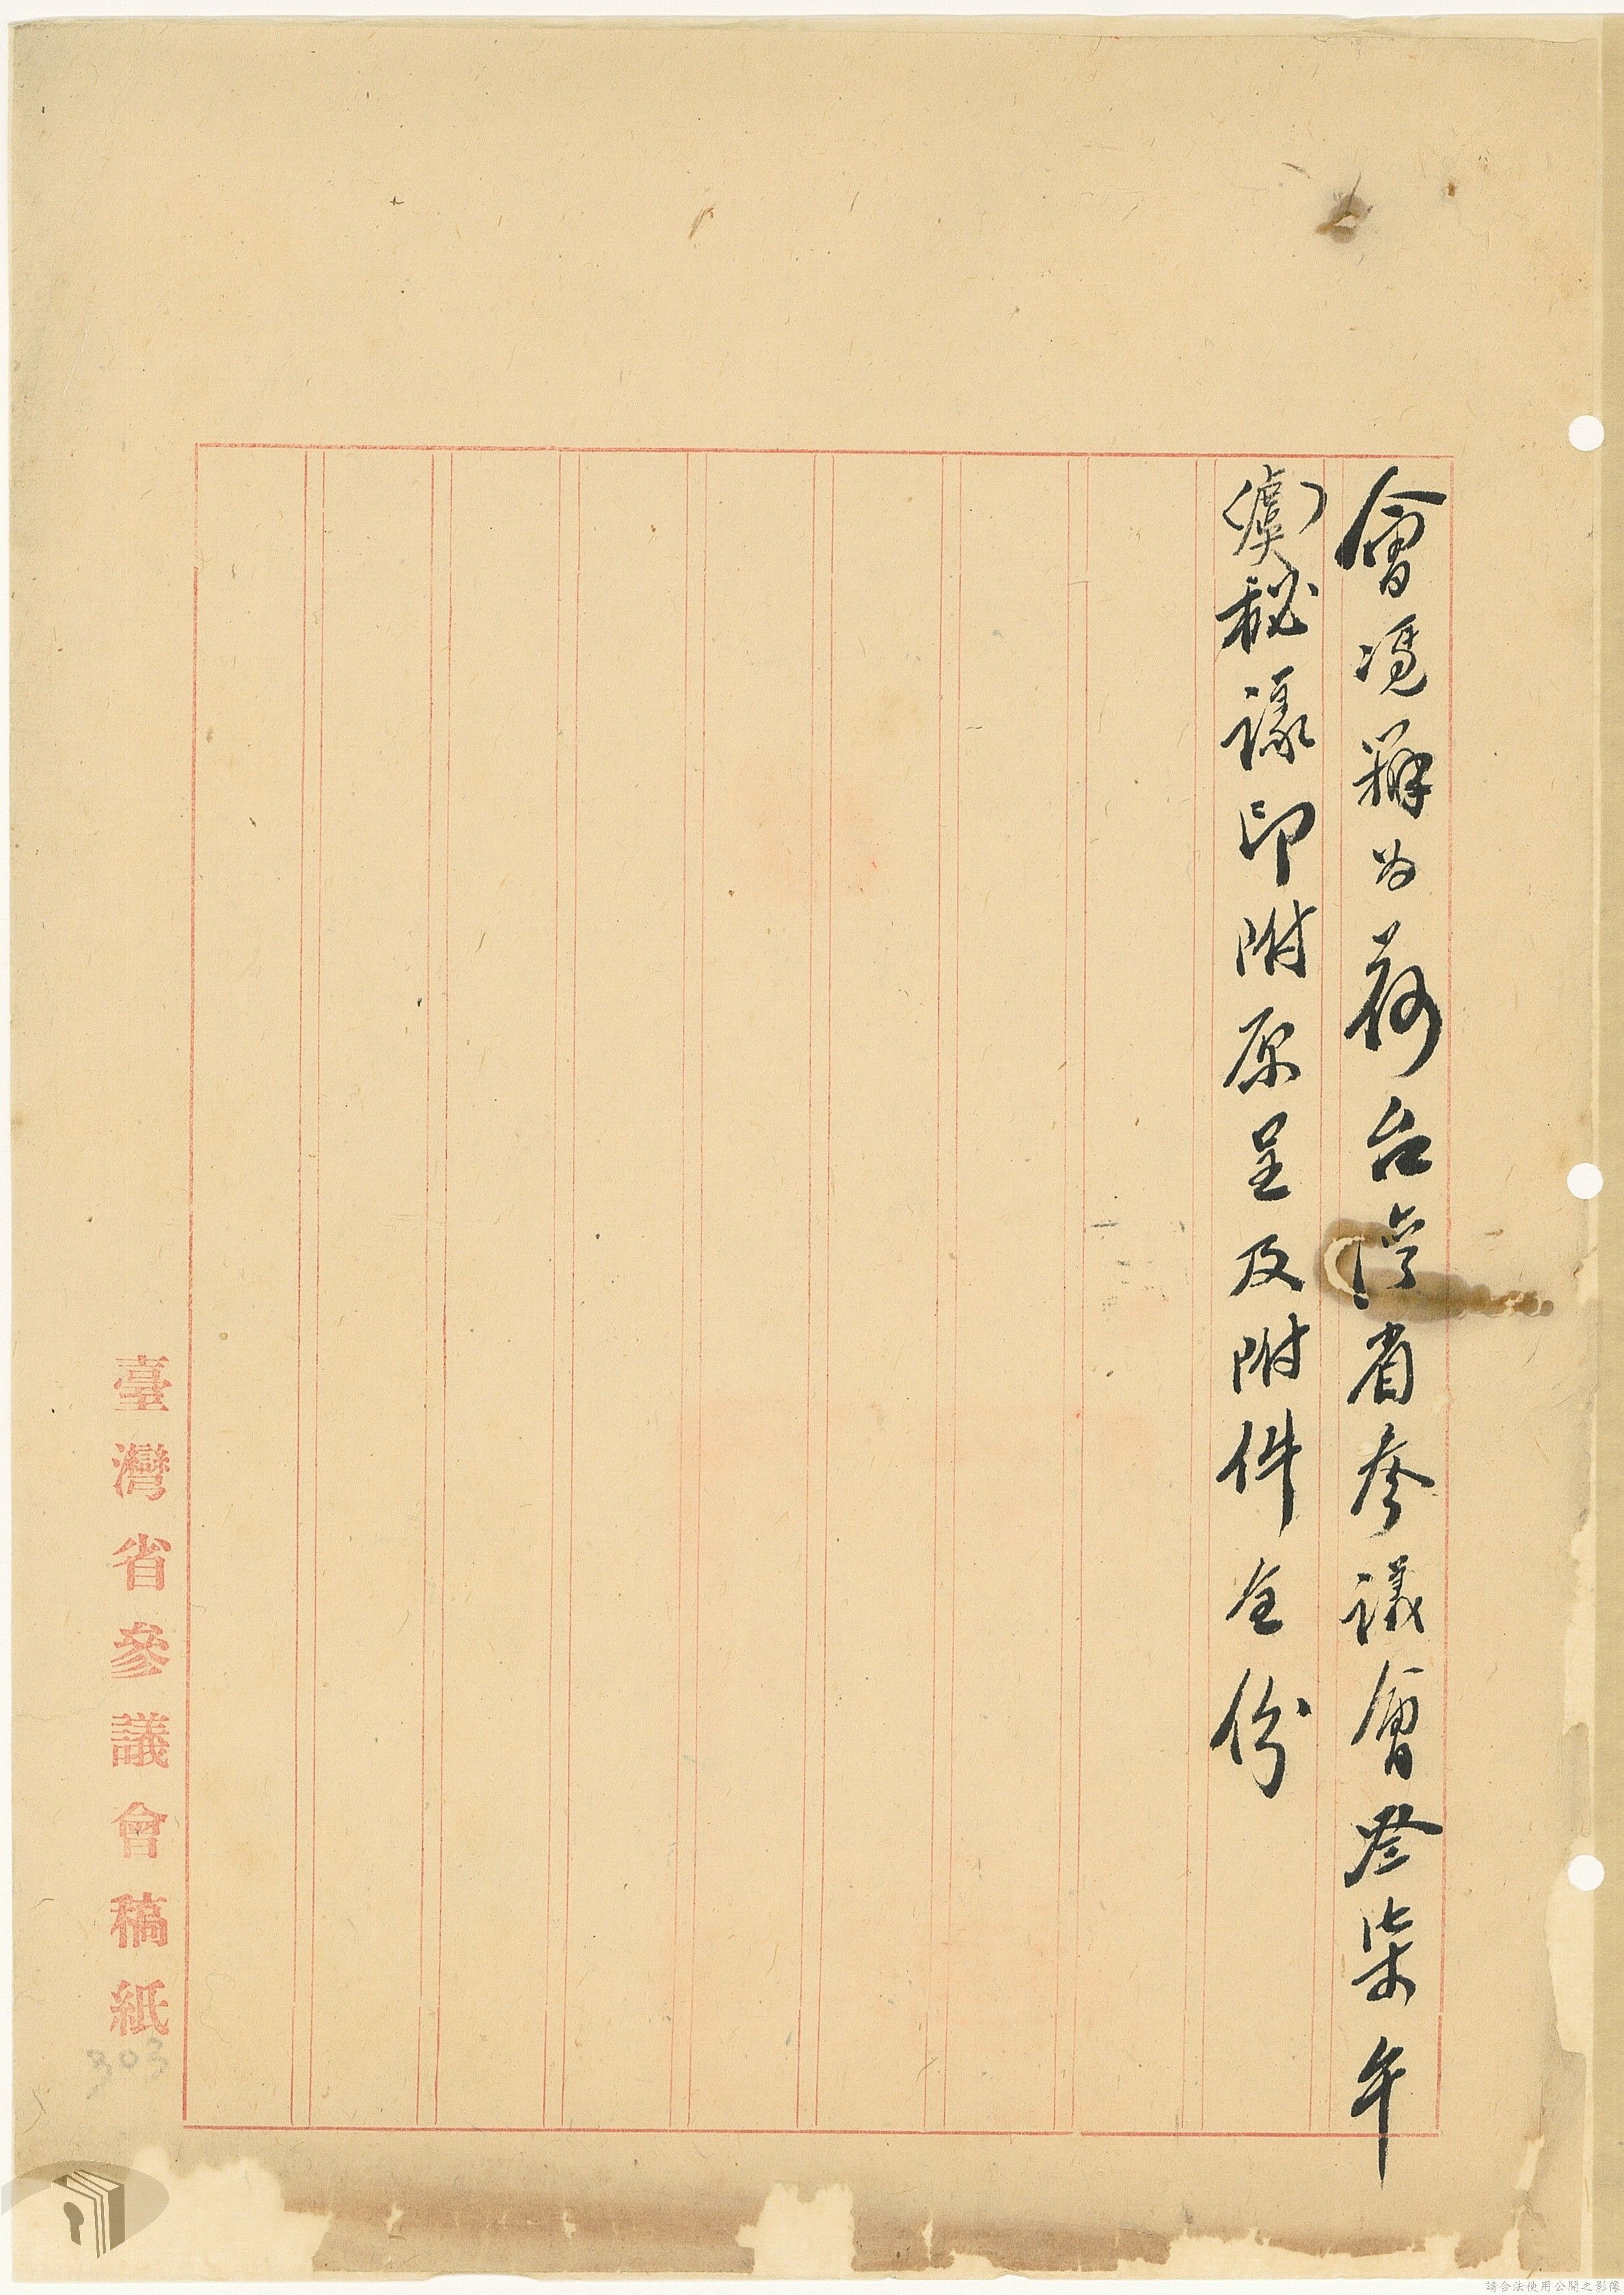 會憑辦為荷台灣省參議會叁柒午
(虞)秘議印附原呈及附件全份
臺灣省參議會稿紙
303
請合法使用公開之影像